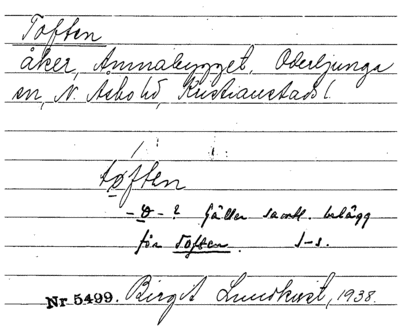 Toften
åker, Annabygget, Oderljunga
sn, N. Åsbo hd, Kristianstads l.
tøften
- ɵ - ? Gäller samtl. belägg
för Toften. S-s.
Nr 5499. Birgit Lundkvist, 1938.